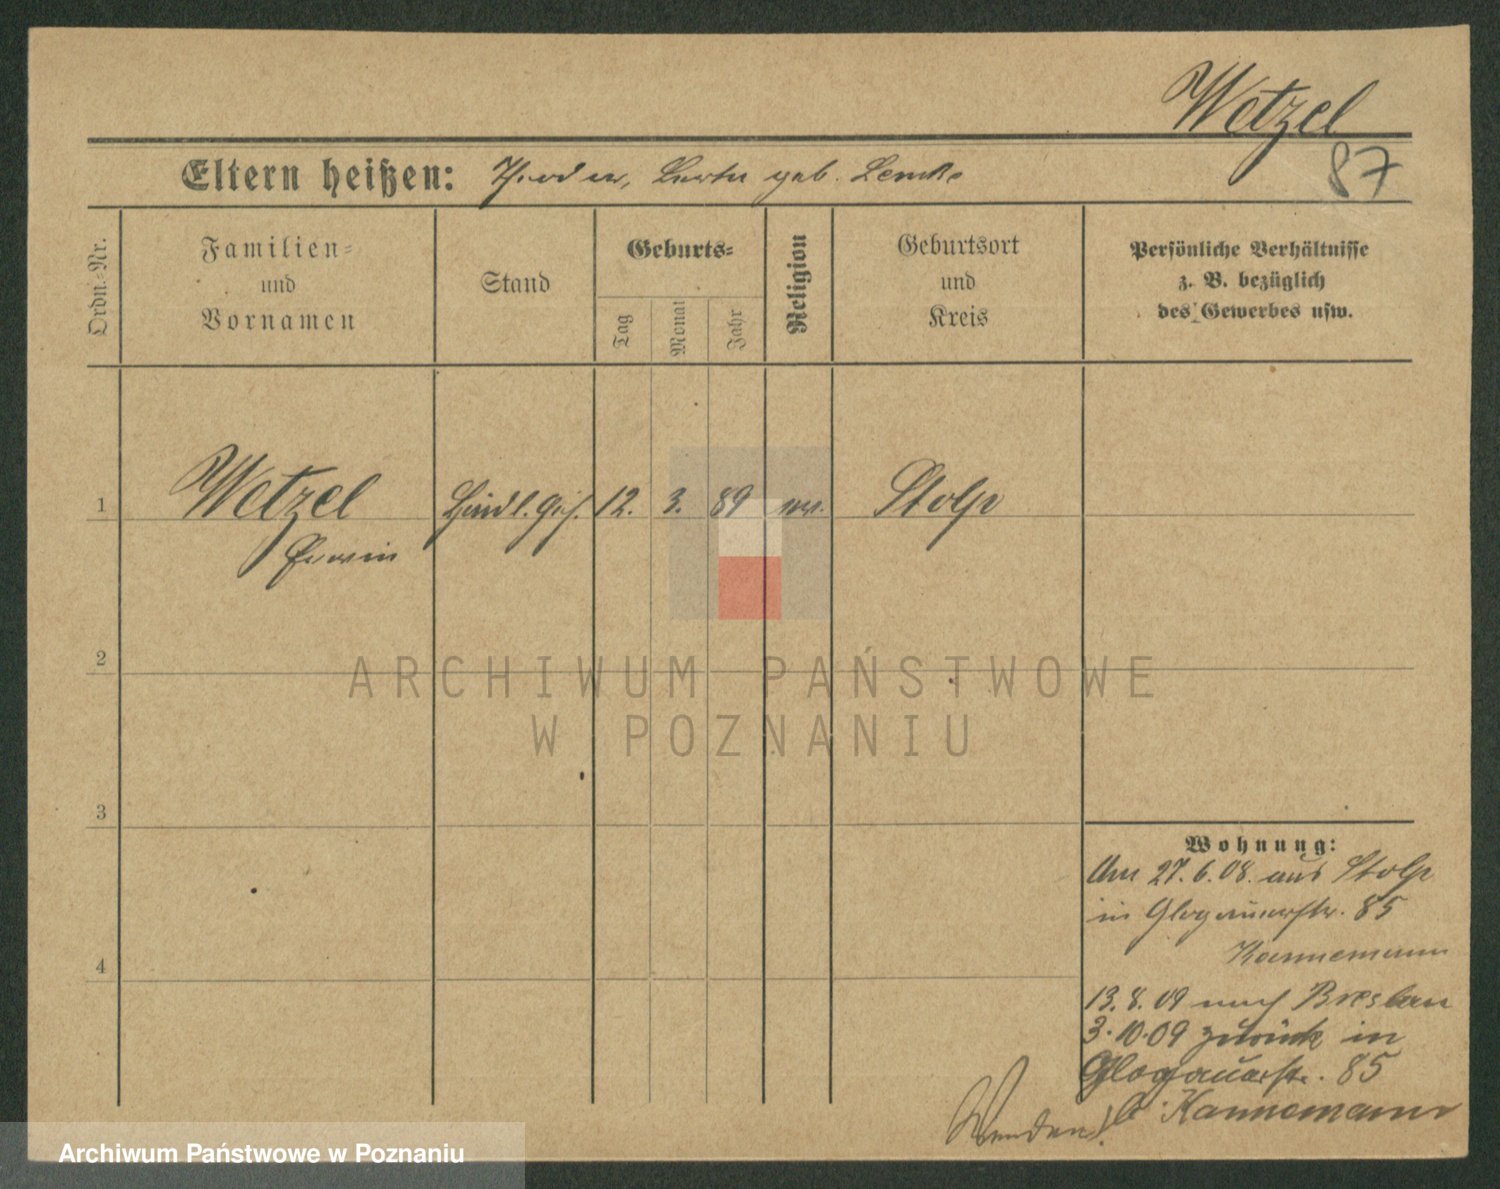 Wetzel
87
Eltern heißen: Theodor, Berta geb. Lemke
Ordn.-Nr.
Familien-
und
Vornamen
Stand
Geburts-
Tag
Monat
Jahr
Religion
Geburtsort
und
Kreis
Persönliche Verhältnisse
z. B. bezüglich
des Gewerbes usw.
1
Wetzel
Erwin
Handl. Geh.
12.
3.
89
ev.
Stolp
2
3
4
ARCHIWUM PAŃSTWOWE
W POZNANIU
Wohnung:
Am 27.6.08. aus Stolp
in Glogauerstr. 85
Kannemann
13.8.09 nach Breslau
3.10.09 zurück in
Glogauerstr. 85
b. Kannemann
Wenden!
Archiwum Państwowe w Poznaniu